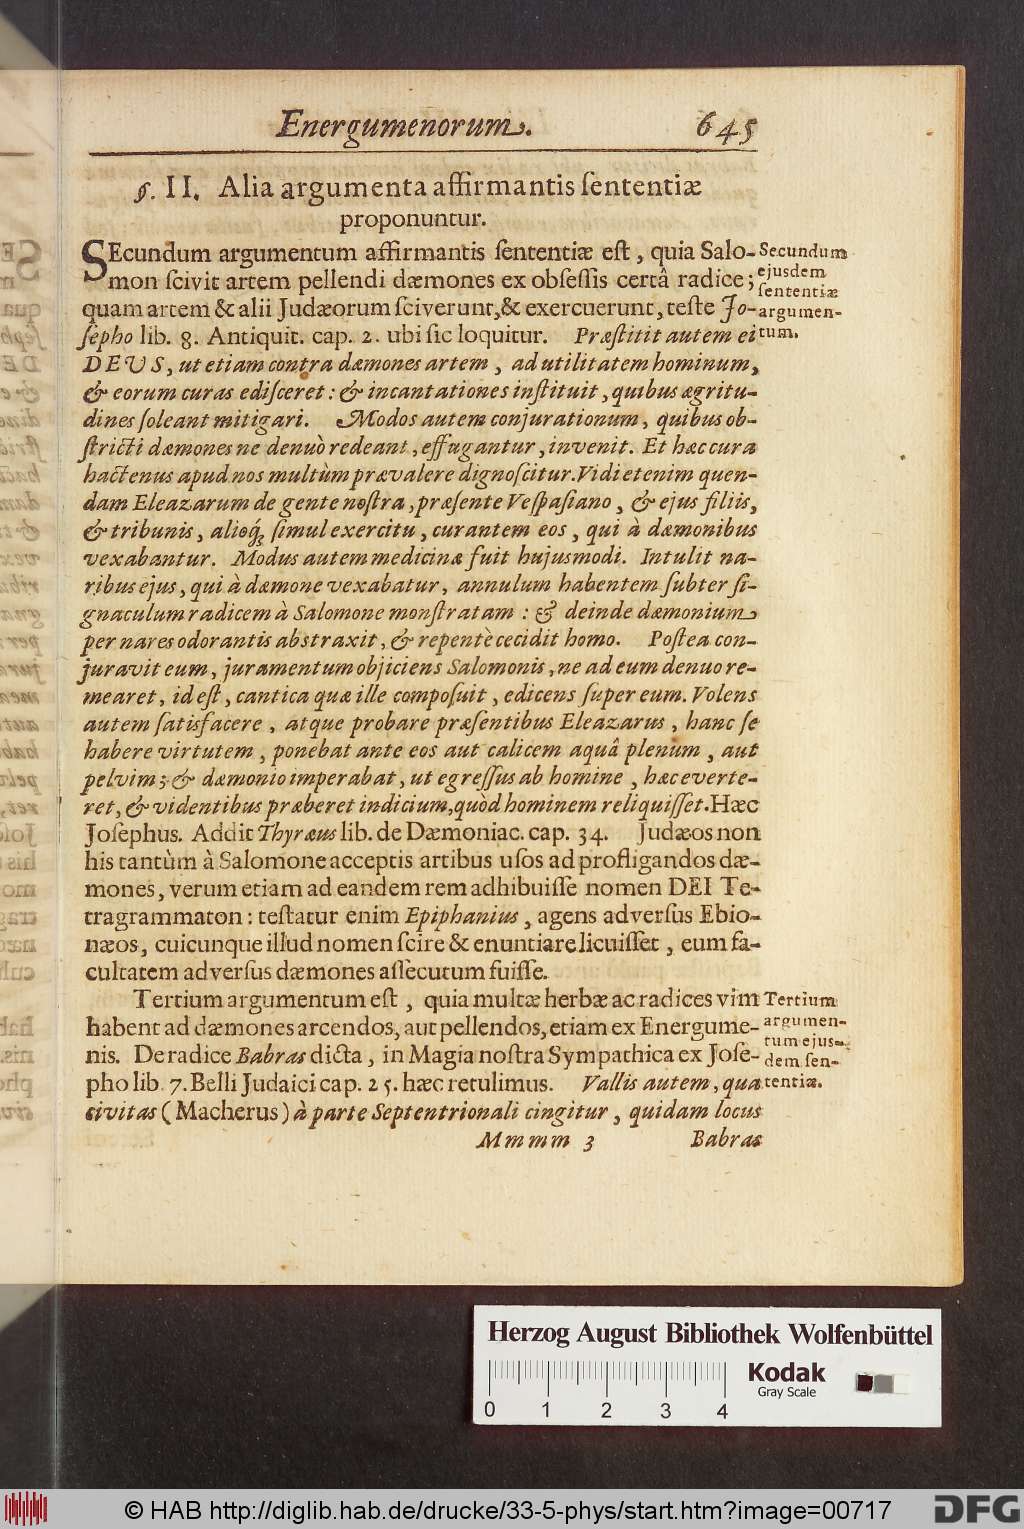 Energumenorum. 645
§. II. Alia argumenta affirmantis ſententiæ
proponuntur.
SEcundum argumentum affirmantis ſententiæ eſt, quia Salo-
mon ſcivit artem pellendi dæmones ex obſeſſis certâ radice;
quam artem & alii Judæorum ſciverunt, & exercuerunt, teſte Jo-
ſepho lib. 8. Antiquit. cap. 2. ubi ſic loquitur. Præſtitit autem ei
DEUS, ut etiam contra dæmones artem, ad utilitatem hominum,
& eorum curas ediſceret: & incantationes inſtituit, quibus ægritu-
dines ſoleant mitigari. Modos autem conjurationum, quibus ob-
ſtricti dæmones ne denuò redeant, effugantur, invenit. Et hæc cura
hactenus apud nos multùm prævalere dignoſcitur. Vidi etenim quen-
dam Eleazarum de gente noſtra, præſente Veſpaſiano, & ejus filiis,
& tribunis, alioq́; ſimul exercitu, curantem eos, qui à dæmonibus
vexabantur. Modus autem medicinæ fuit hujusmodi. Intulit na-
ribus ejus, qui à dæmone vexabatur, annulum habentem ſubter ſi-
gnaculum radicem à Salomone monſtratam: & deinde dæmonium
per nares odorantis abstraxit, & repentè cecidit homo. Poſtea con-
juravit eum, juramentum objiciens Salomonis, ne ad eum denuo re-
mearet, id eſt, cantica quæ ille compoſuit, edicens ſuper eum. Volens
autem ſatisfacere, atque probare præſentibus Eleazarus, hanc ſe
habere virtutem, ponebat ante eos aut calicem aquâ plenum, aut
pelvim; & dæmonio imperabat, ut egreſſus ab homine, hæc everte-
ret, & videntibus præberet indicium, quòd hominem reliquiſſet. Hæc
Joſephus. Addit Thyræus lib. de Dæmoniac. cap. 34. Judæos non
his tantùm à Salomone acceptis artibus uſos ad profligandos dæ-
mones, verum etiam ad eandem rem adhibuiſſe nomen DEI Te-
tragrammaton: teſtatur enim Epiphanius, agens adverſus Ebio-
næos, cuicunque illud nomen ſcire & enuntiare licuiſſet, eum fa-
cultatem adverſus dæmones aſſecutum fuiſſe.
Tertium argumentum eſt, quia multæ herbæ ac radices vim
habent ad dæmones arcendos, aut pellendos, etiam ex Energume-
nis. De radice Babras dicta, in Magia noſtra Sympathica ex Joſe-
pho lib. 7. Belli Judaici cap. 25. hæc retulimus. Vallis autem, qua
civitas (Macherus) à parte Septentrionali cingitur, quidam locus
Mmmm 3 Babras
Secundum
ejusdem
ſententiæ
argumen-
tum.
Tertium
argumen-
tum ejus-
dem ſen-
tentiæ.
Herzog August Bibliothek Wolfenbüttel
Kodak
Gray Scale
0 1 2 3 4
© HAB http://diglib.hab.de/drucke/33-5-phys/start.htm?image=00717
DFG